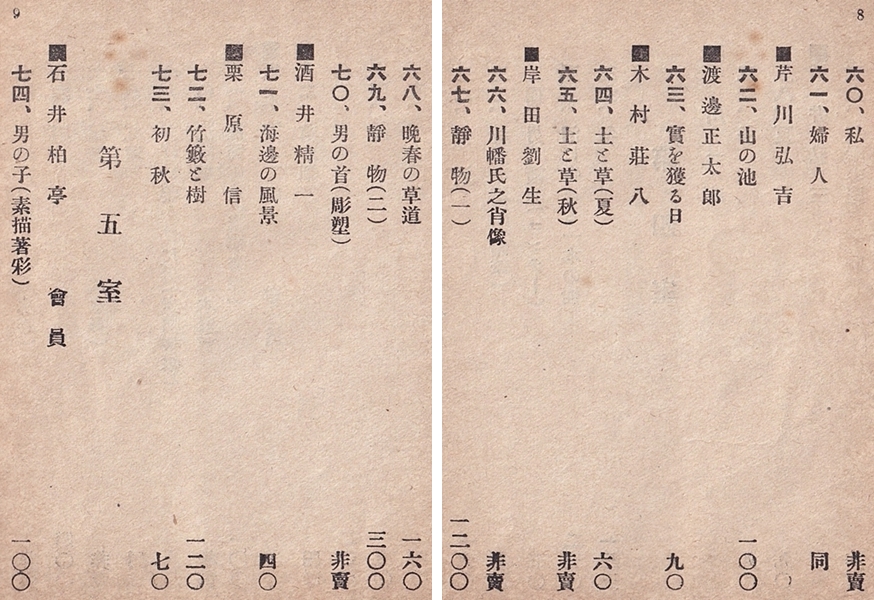 8
六〇、私 非賣
六一、婦人 同
■芹川弘吉
六二、山の池 一〇〇
■渡邊正太郎
六三、實を獲る日 九〇
■木村莊八
六四、土と草(夏) 六〇
六五、土と草(秋) 非賣
■岸田劉生
六六、川幡氏之肖像 非賣
六七、靜物(一) 一二〇〇
9
六八、晩春の草道 一六〇
六九、靜物(二) 三〇〇
七〇、男の首(彫塑) 非賣
■酒井精一
七一、海邊の風景 四〇
■栗原信
七二、竹籔と樹 一二〇
七三、初秋 七〇
第五室
■石井柏亭 會員
七四、男の子(素描著彩) 一〇〇